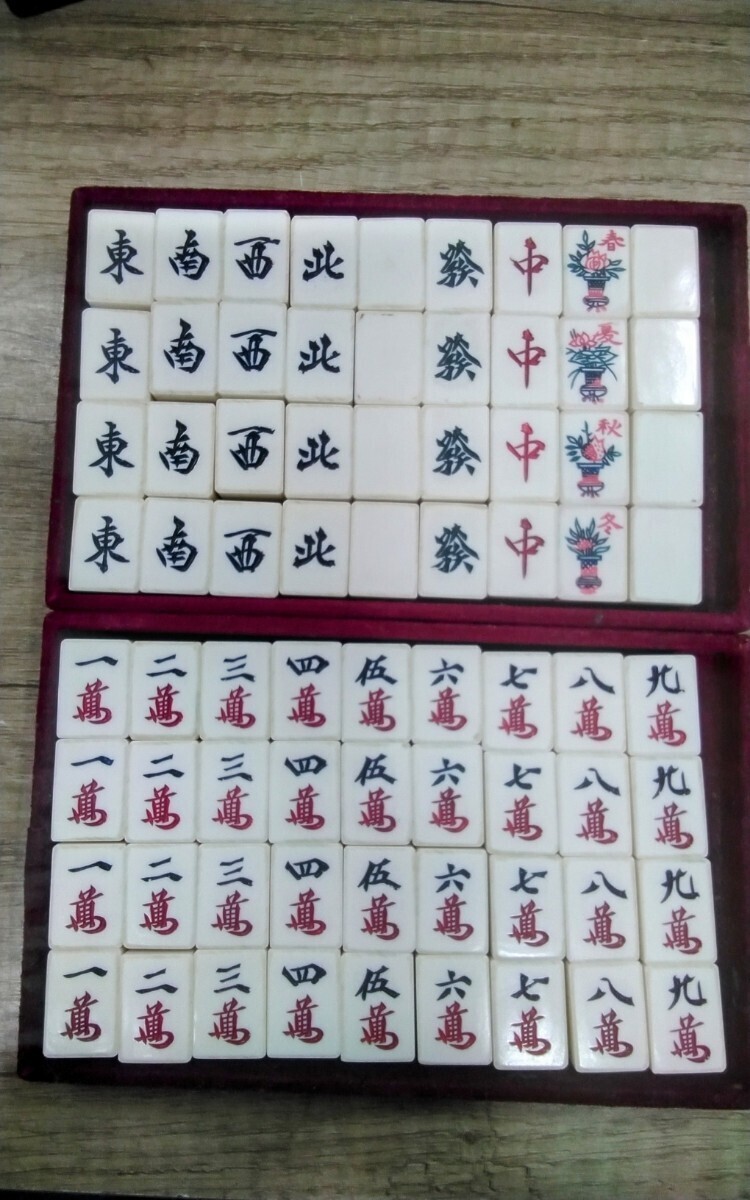 東 南 西 北 發 中 春
東 南 西 北 發 中 夏
東 南 西 北 發 中 秋
東 南 西 北 發 中 冬
一 二 三 四 伍 六 七 八 九
萬 萬 萬 萬 萬 萬 萬 萬 萬
一 二 三 四 伍 六 七 八 九
萬 萬 萬 萬 萬 萬 萬 萬 萬
一 二 三 四 伍 六 七 八 九
萬 萬 萬 萬 萬 萬 萬 萬 萬
一 二 三 四 伍 六 七 八 九
萬 萬 萬 萬 萬 萬 萬 萬 萬